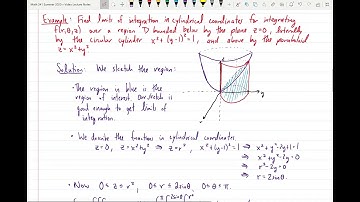 Math 24 - Summer 2020 - Video Lecture Series
Example: Find limits of integration in cylindrical coordinates for integrating
f(r,θ,z) over a region D bounded below by the plane z=0, laterally
by the circular cylinder x²+(y-1)²=1, and above by the paraboloid
z=x²+y²
Solution: We sketch the region:
• The region in blue is the
region of interest. Our sketch is
good enough to get limits of
integration.
y
• We describe the functions in cylindrical coordinates.
z=0, z=x²+y² ⇒ z=r², x²+(y-1)²=1 ⇒ x²+y²-2y+1=1
⇒ x²+y²-2y=0
⇒ r²-2y=0
⇒ r=2sinθ.
• Now 0≤z≤r², 0≤r≤2sinθ, 0≤θ≤π.